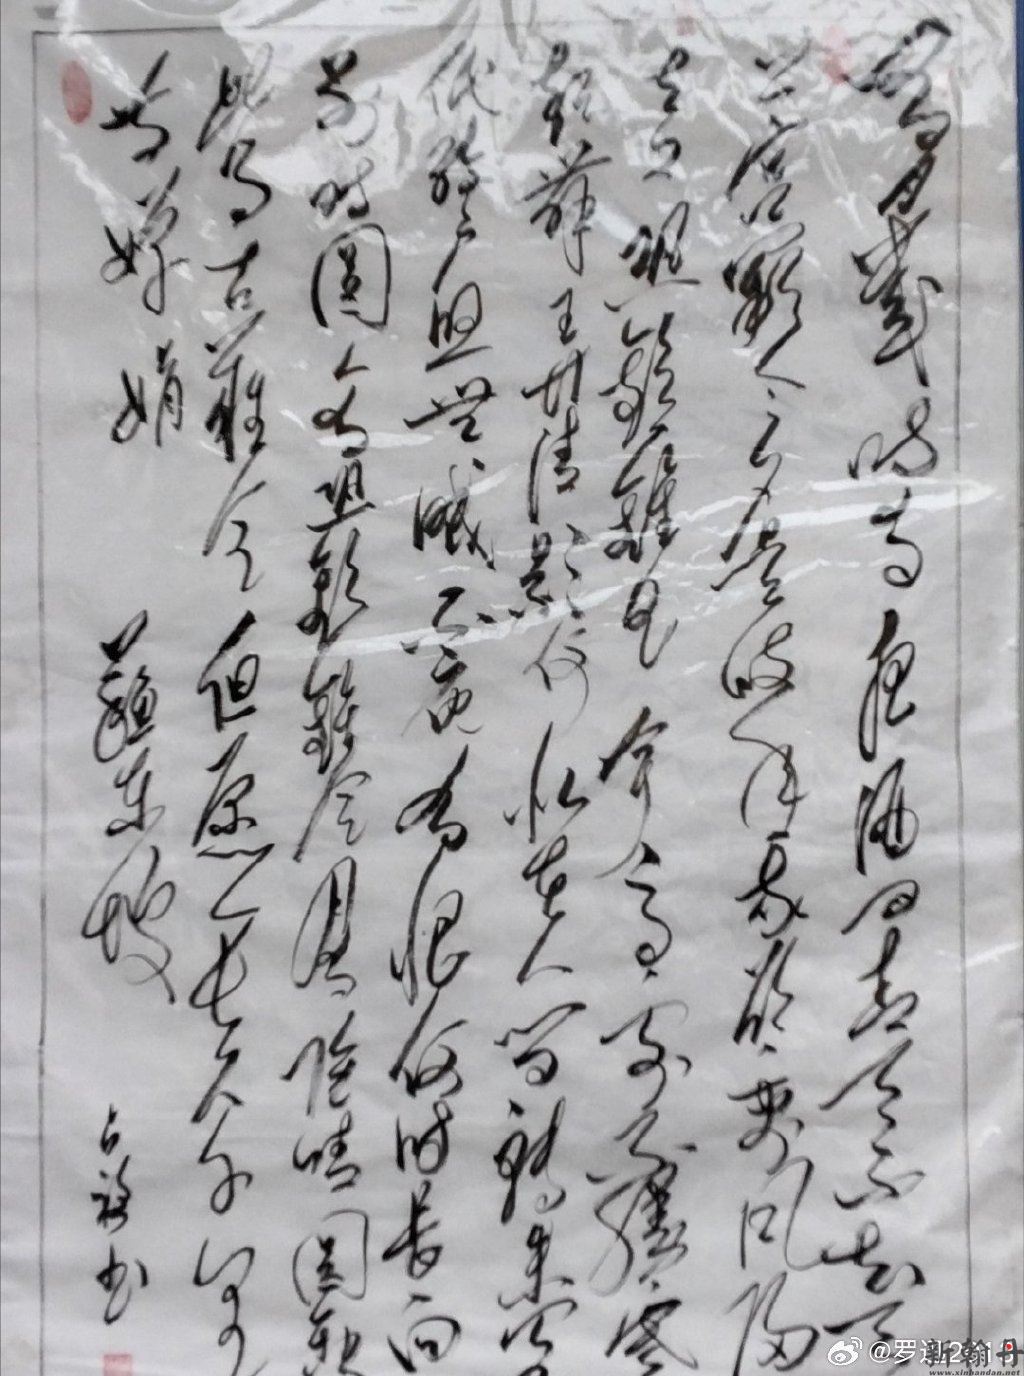 明月幾时有把酒问青天不知天
上宫阙今夕是年我欲乘风归
去又恐瓊樓玉宇高处不勝寒
起舞弄清影何似在人间转朱阁
低绮户照無眠不应有恨何时长向
别时圆人有悲歡離合月有陰晴圆缺
此事古難全但愿人长久千里
共婵娟 蘇東坡 书
@罗运2翰书
新翰丹
www.xinhandan.net